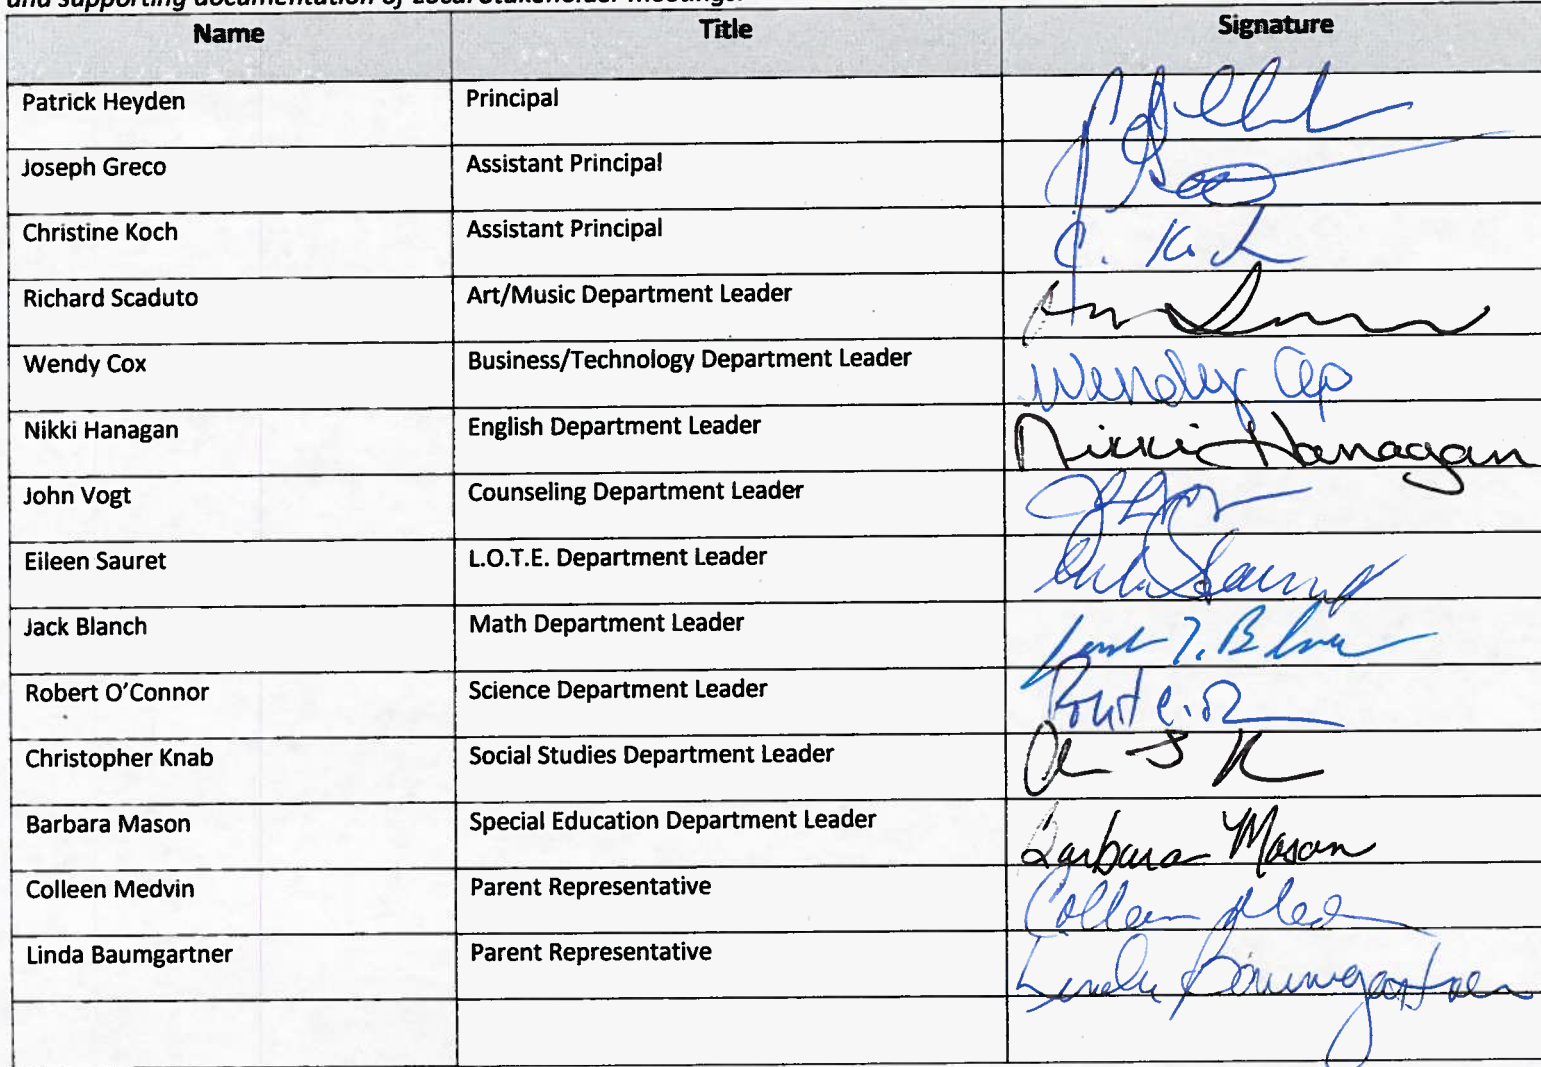 and supporting documentation of Local Stakeholder meetings.
Name Title Signature
Patrick Heyden Principal
Joseph Greco Assistant Principal
Christine Koch Assistant Principal C. Koch
Richard Scaduto Art/Music Department Leader
Wendy Cox Business/Technology Department Leader Wendy Cox
Nikki Hanagan English Department Leader Nikki Hanagan
John Vogt Counseling Department Leader
Eileen Sauret L.O.T.E. Department Leader
Jack Blanch Math Department Leader
Robert O'Connor Science Department Leader
Christopher Knab Social Studies Department Leader
Barbara Mason Special Education Department Leader Barbara Mason
Colleen Medvin Parent Representative Colleen
Linda Baumgartner Parent Representative Linda Baumgartner